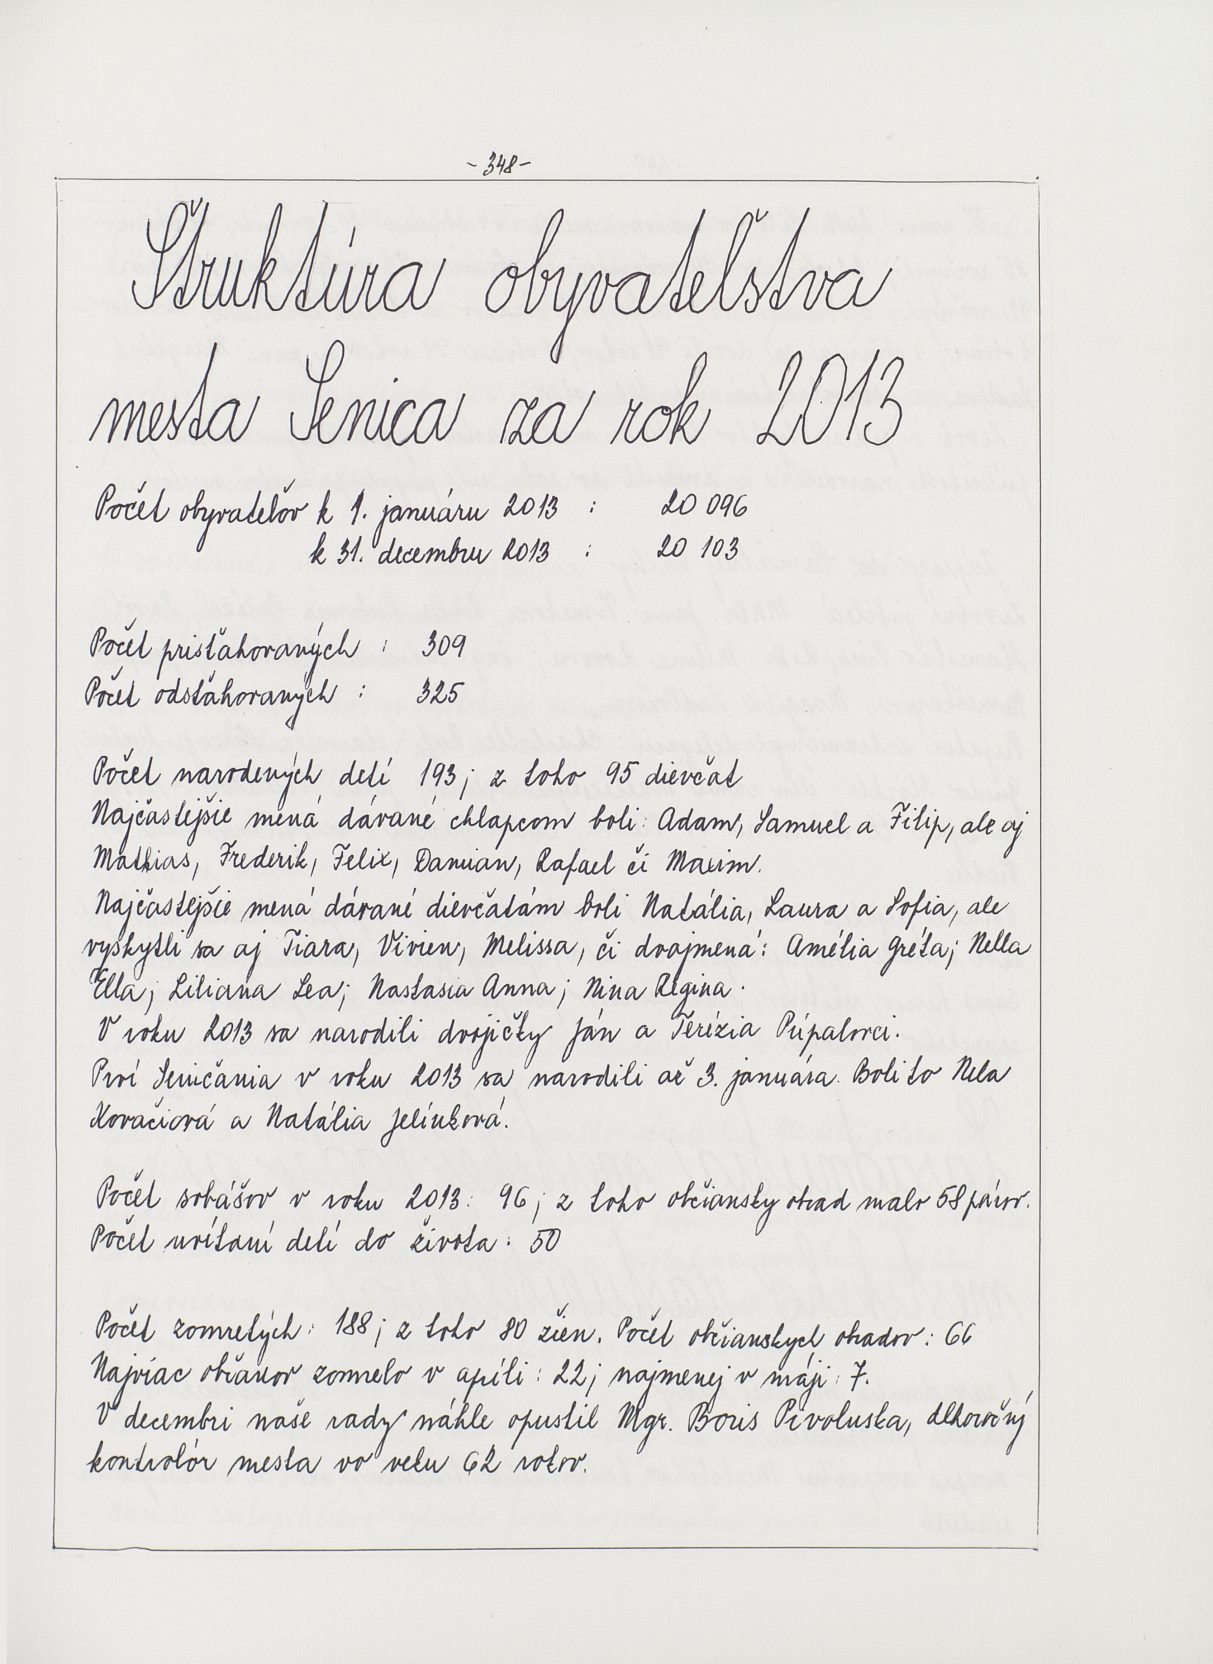 - 348 -
Štruktúra obyvateľstva
mesta Senica za rok 2013
Počet obyvateľov k 1. januáru 2013 : 20 096
k 31. decembru 2013 : 20 103
Počet prisťahovaných : 309
Počet odsťahovaných : 325
Počet narodených detí 193; z toho 95 dievčat
Najčastejšie mená dávané chlapcom boli: Adam, Samuel a Filip, ale aj
Mathias, Frederik, Felix, Damian, Rafael či Maxim.
Najčastejšie mená dávané dievčatám boli Natália, Laura a Sofia, ale
vyskytli sa aj Tiara, Vivien, Melissa, či dvojmená: Amélia Gréta; Nella
Ella; Liliana Lea; Nastasia Anna; Nina Regina.
V roku 2013 sa narodili dvojičky Ján a Terézia Púpalovci.
Prví Seničania v roku 2013 sa narodili až 3. januára. Boli to Nela
Kovačiová a Natália Jelínková.
Počet sobášov v roku 2013: 96; z toho občiansky obrad malo 58 párov.
Počet uvítaní detí do života: 50
Počet zomretých: 188; z toho 80 žien. Počet občianskych obradov: 66
Najviac občanov zomrelo v apríli: 22; najmenej v máji: 7.
V decembri naše rady náhle opustil Mgr. Boris Pivoluska, dlhoročný
kontrolór mesta vo veku 62 rokov.